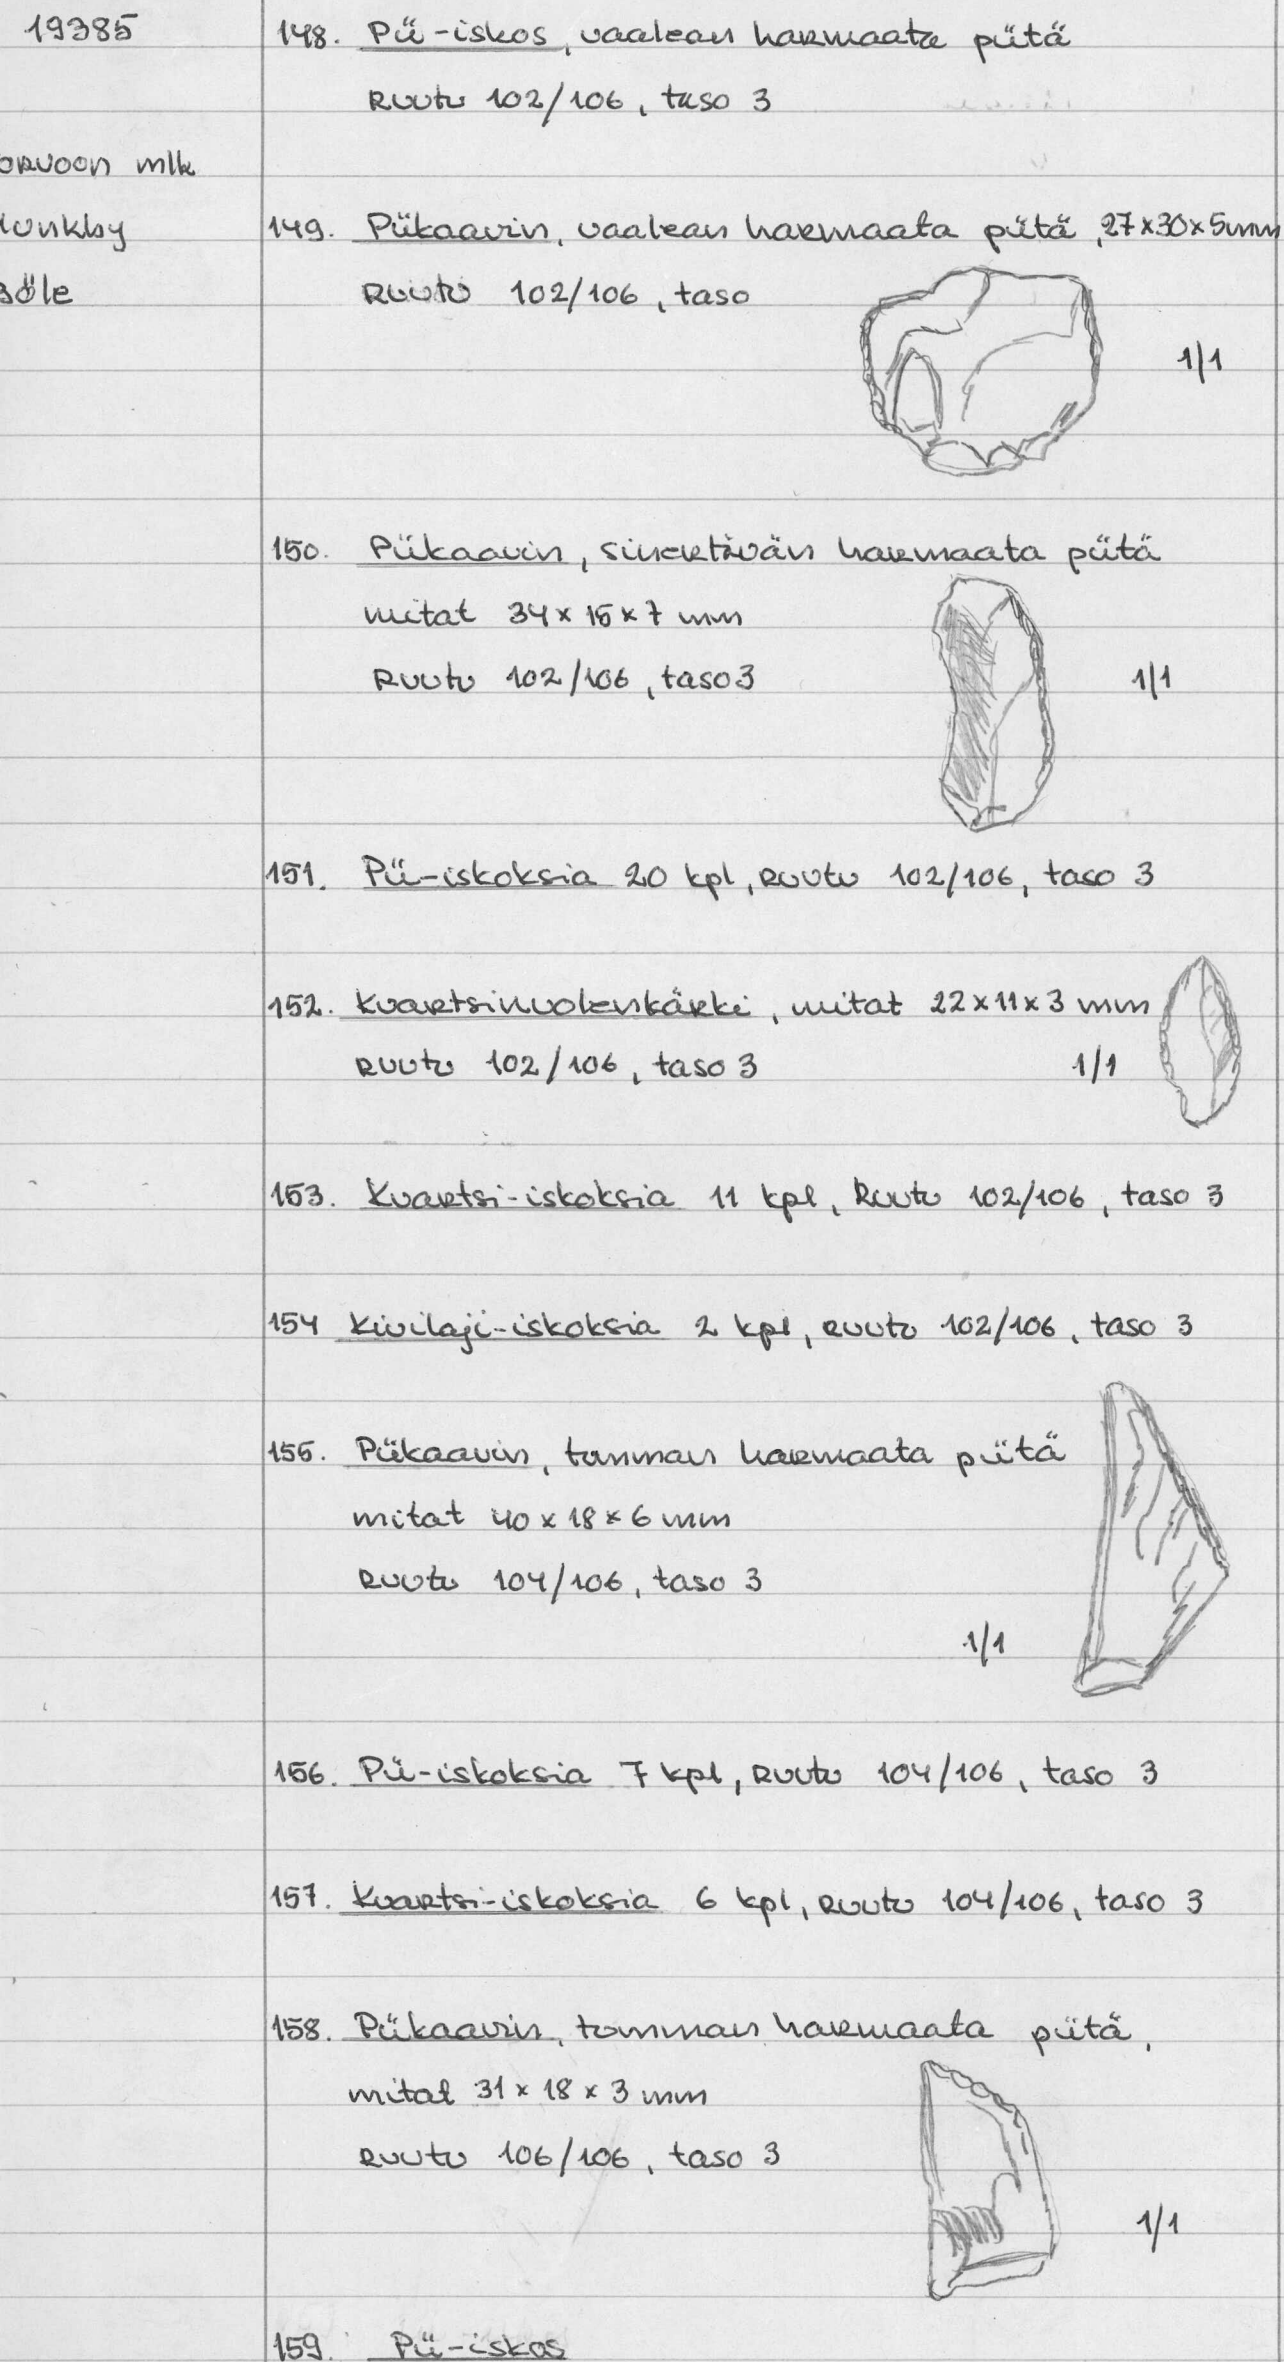 19385
148. Pii-iskos, vaalean harmaata piitä
Ruutu 102/106, taso 3
orvoon mlk
unkby
149. Piikaavin, vaalean harmaata piitä, 27x30x5mm
böle
Ruutu 102/106, taso
1/1
150. Piikaavin, sinertävän harmaata piitä
mitat 34x15x7 mm
Ruutu 102/106, taso 3
1/1
151. Pii-iskoksia 20 kpl, ruutu 102/106, taso 3
152. Kvartsinuolenkärki, mitat 22x11x3 mm
Ruutu 102/106, taso 3
1/1
153. Kvartsi-iskoksia 11 kpl, Ruutu 102/106, taso 3
154 Kivilaji-iskoksia 2 kpl, ruutu 102/106, taso 3
155. Piikaavin, tumman harmaata piitä
mitat 40x18x6 mm
Ruutu 104/106, taso 3
1/1
156. Pii-iskoksia 7 kpl, ruutu 104/106, taso 3
157. Kvartsi-iskoksia 6 kpl, ruutu 104/106, taso 3
158. Piikaavin, tumman harmaata piitä,
mitat 31x18x3 mm
Ruutu 106/106, taso 3
1/1
159. Pii-iskos